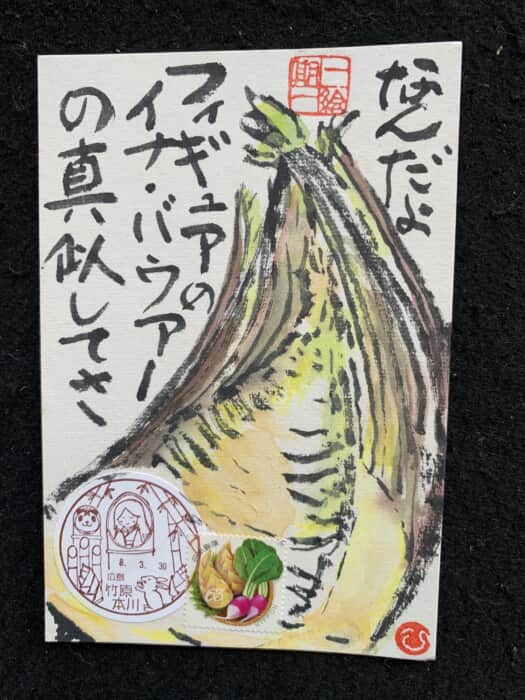 なんだよ
フィギュアの
イナ・バウアー
の真似してさ
一絵
期一
8.3.30
広島
竹原
本川
ひ